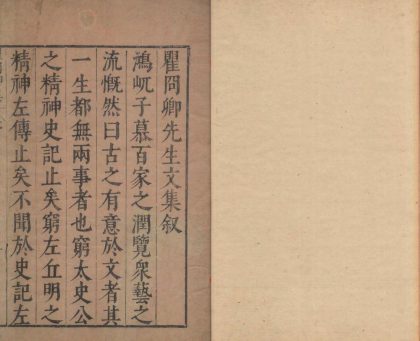 瞿冏卿先生文集叙
鴻屼子慕百家之潤覽衆藝之
流慨然曰古之有意於文者其
一生都無兩事者也窮太史公
之精神史記止矣窮左丘明之
精神左傳止矣不聞於史記左